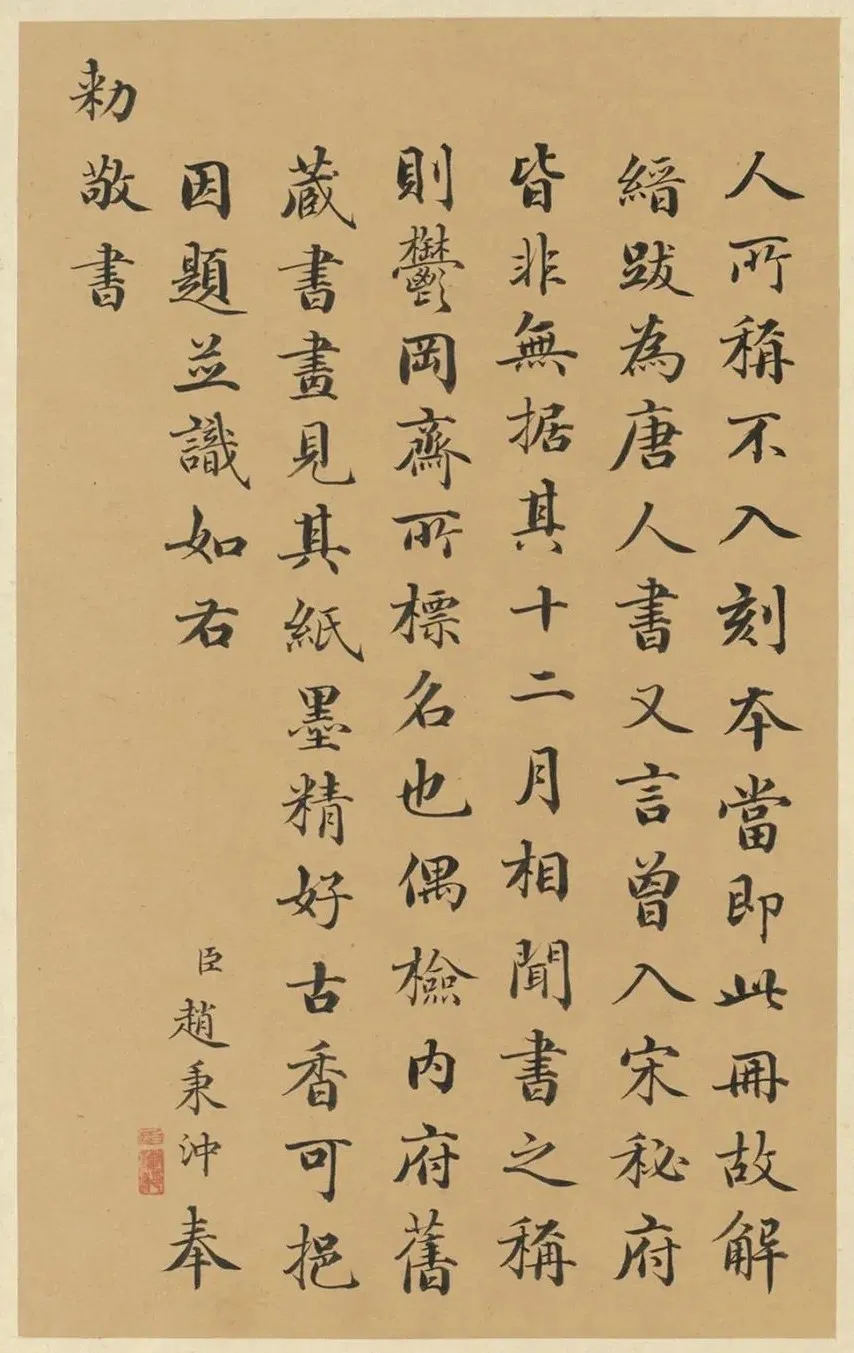 人所稱不入刻本當即此冊故解
縉跋為唐人書又言曾入宋秘府
皆非無据其十二月相聞書之稱
則鬱岡齋所標名也偶檢內府舊
藏書畫見其紙墨精好古香可挹
因題並識如右 臣趙秉沖奉
勅敬書